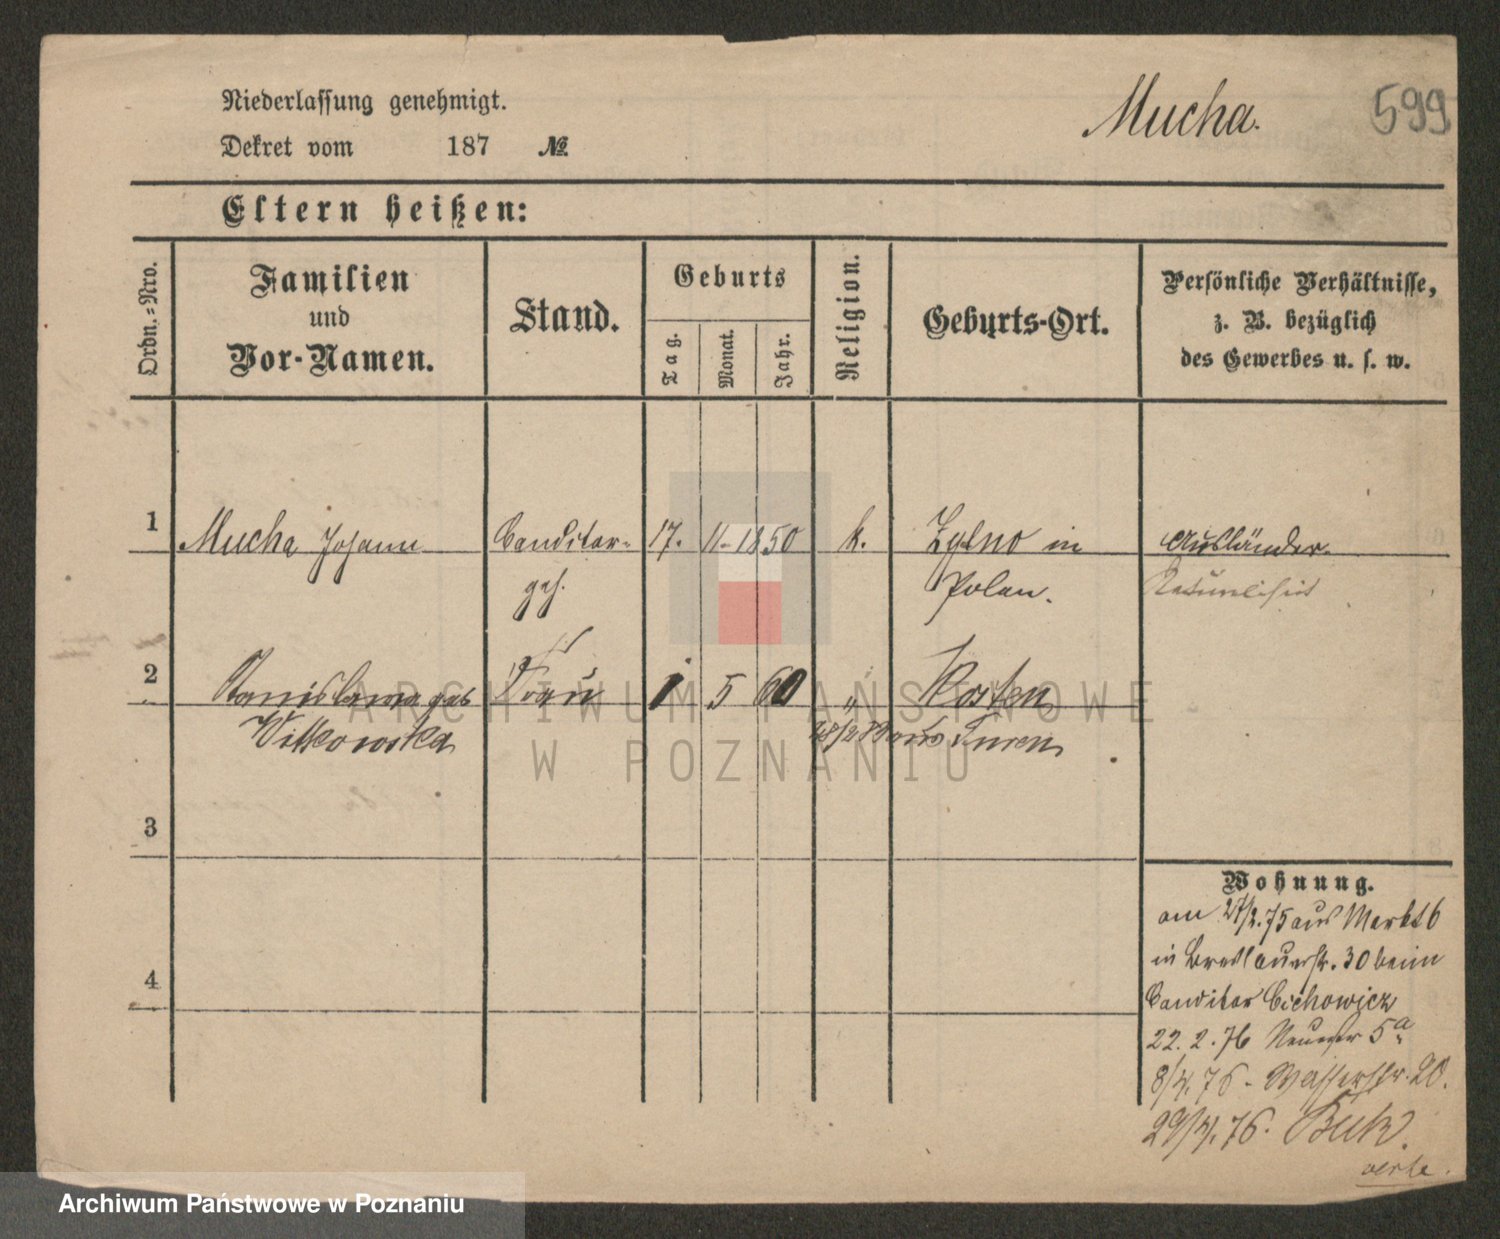 Niederlassung genehmigt.
Mucha.
599
Dekret vom 187 №
Eltern heißen:
Ordn.-Nro.
Familien
und
Vor-Namen.
Stand.
Geburts
Tag.
Monat.
Jahr.
Religion.
Geburts-Ort.
Persönliche Verhältnisse,
z. B. bezüglich
des Gewerbes u. s. w.
1 Mucha Johann Conditor- 17. 11. 1850 k. in Ausländer.
geh. Polen.
2 Stanislawa geb Frau 1 5 60 " Kosten
Witkowska
28/2 83 aus
3
4
Wohnung.
am 27/2.75 aus Markt 6
in Breslauerstr. 30 beim
Conditor Cichowicz
22. 2. 76 5a
8/4. 76 - Wasserstr. 20.
29/4. 76. Buk
verte.
ARCHIWUM PAŃSTWOWE
W POZNANIU
Archiwum Państwowe w Poznaniu